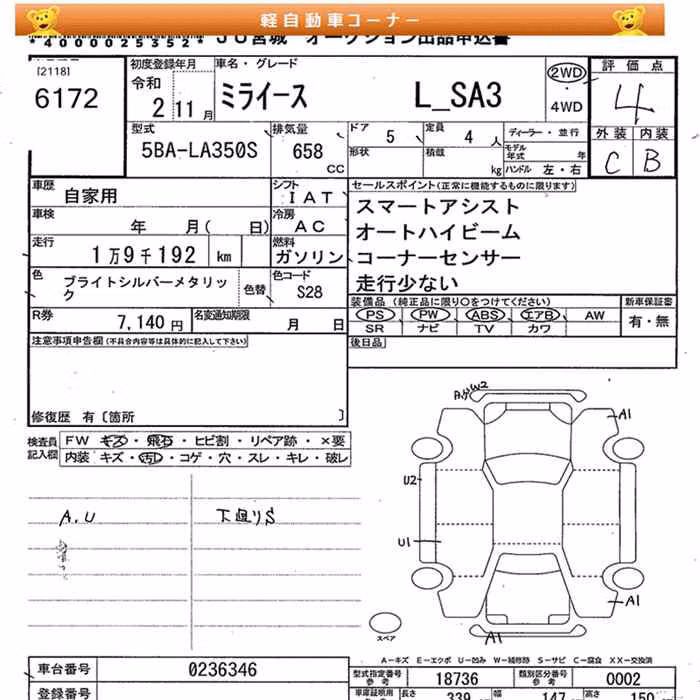 軽自動車コーナー
*4000025352* JU宮城 オークション出品申込書
[2118]
6172
初度登録年月
令和
2 11月
車名・グレード
ミライース L_SA3
2WD
・
4WD
評価点
4
外装 内装
C B
型式
5BA-LA350S
排気量
658
CC
ドア 5
形状
定員 4 人
積載 kg
ディーラー・並行
モデル年式 年
ハンドル 左・右
車歴
自家用
シフト
IAT
車検 年 月( 日)
冷房
AC
走行
1万9千192 km
燃料
ガソリン
色
ブライトシルバーメタリック
色替
色コード
S28
R券
7,140 円
名変通知期限
月 日
セールスポイント(正常に機能するものに限ります)
スマートアシスト
オートハイビーム
コーナーセンサー
走行少ない
装備品(純正品に限り○をつけてください)
PS PW ABS エアB AW
SR ナビ TV カワ
新車保証書
有・無
後日品
注意事項申告欄(不具合内容等は具体的に記入して下さい)
修復歴 有〔箇所 〕
検査員記入欄
FW キズ・飛石・ヒビ割・リペア跡・×要
内装 キズ・汚レ・コゲ・穴・スレ・キレ・破レ
A.U
下廻りS
W2
A1
U2
U1
A1
A1
スペア
A-キズ E-エクボ U-凹み W-補修跡 S-サビ C-腐食 XX-交換済
車台番号 0236346
登録番号
型式指定番号 参考 18736
類別区分番号 参考 0002
車庫証明用 参考
長さ 339
幅 147
高さ 150